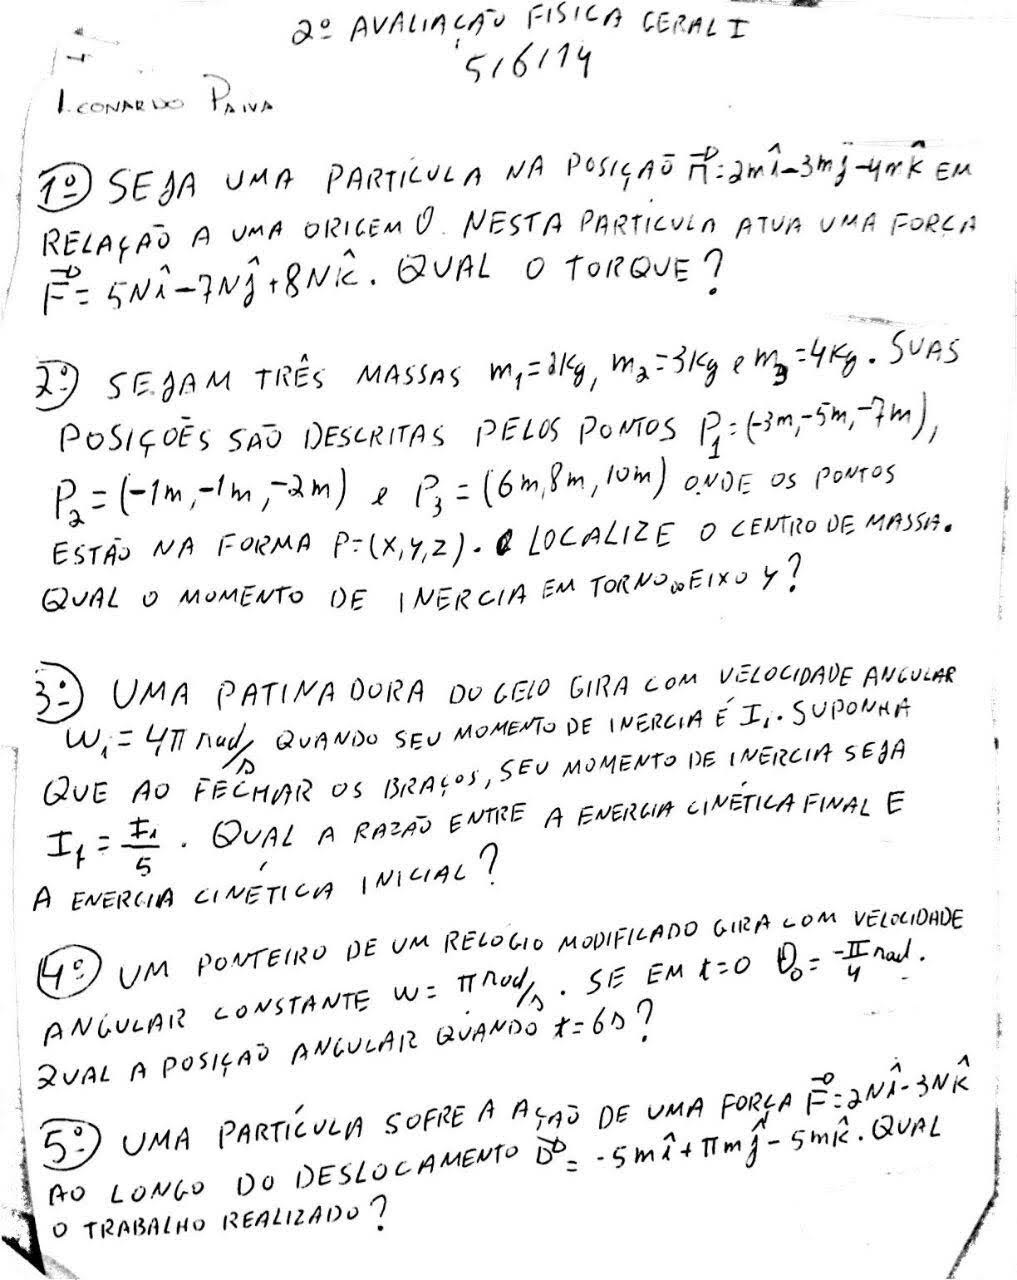 2º AVALIAÇÃO FISICA GERAL I
5/6/14
LEONARDO PAIVA
1º) SEJA UMA PARTÍCULA NA POSIÇÃO r⃗=2mî-3mĵ-4mk̂ EM
RELAÇÃO A UMA ORIGEM O. NESTA PARTICULA ATUA UMA FORÇA
F⃗= 5Nî-7Nĵ+8Nk̂. QUAL O TORQUE?
2º) SEJAM TRÊS MASSAS m₁=2Kg, m₂=3Kg e m₃=4Kg. SUAS
POSIÇÕES SÃO DESCRITAS PELOS PONTOS P₁=(-3m,-5m,-7m),
P₂=(-1m,-1m,-2m) e P₃=(6m,8m,10m) ONDE OS PONTOS
ESTÃO NA FORMA P=(X,Y,Z). LOCALIZE O CENTRO DE MASSA.
QUAL O MOMENTO DE INERCIA EM TORNO DO EIXO Y?
3º) UMA PATINADORA DO GELO GIRA COM VELOCIDADE ANGULAR
Wᵢ=4π rad/s QUANDO SEU MOMENTO DE INERCIA É Iᵢ. SUPONHA
QUE AO FECHAR OS BRAÇOS, SEU MOMENTO DE INERCIA SEJA
I_f = Iᵢ/5. QUAL A RAZÃO ENTRE A ENERGIA CINÉTICA FINAL E
A ENERGIA CINÉTICA INICIAL?
4º) UM PONTEIRO DE UM RELOGIO MODIFICADO GIRA COM VELOCIDADE
ANGULAR CONSTANTE W= π rad/s. SE EM t=0 θ₀=-π/4 rad.
QUAL A POSIÇÃO ANGULAR QUANDO t=6s?
5º) UMA PARTÍCULA SOFRE A AÇÃO DE UMA FORÇA F⃗=2Nî-3Nk̂
AO LONGO DO DESLOCAMENTO D⃗= -5mî+πmĵ-5mk̂. QUAL
O TRABALHO REALIZADO?